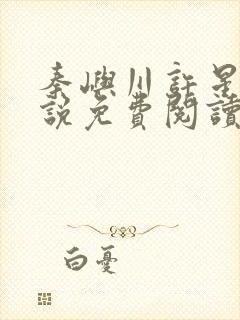 秦嶼川許星
說免費閱讀
白憂